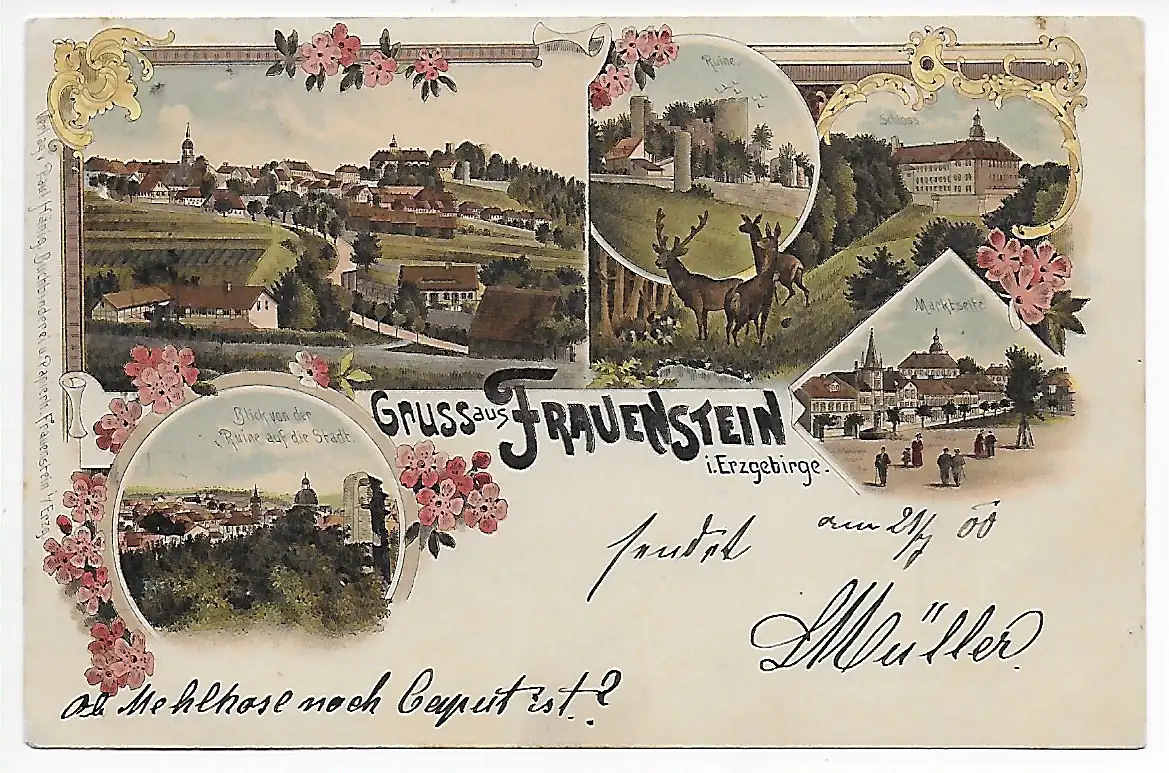 Ruine.
Schloss
Marktseite
Blick von der
Ruine auf die Stadt.
GRUSS aus FRAUENSTEIN
i. Erzgebirge.
Paul Hännig, Buchbinderei u. Papierh. Frauenstein i/Erzg.
sendet am 21/7 00
LMüller.
ob Mehlhose noch Caput ist.?